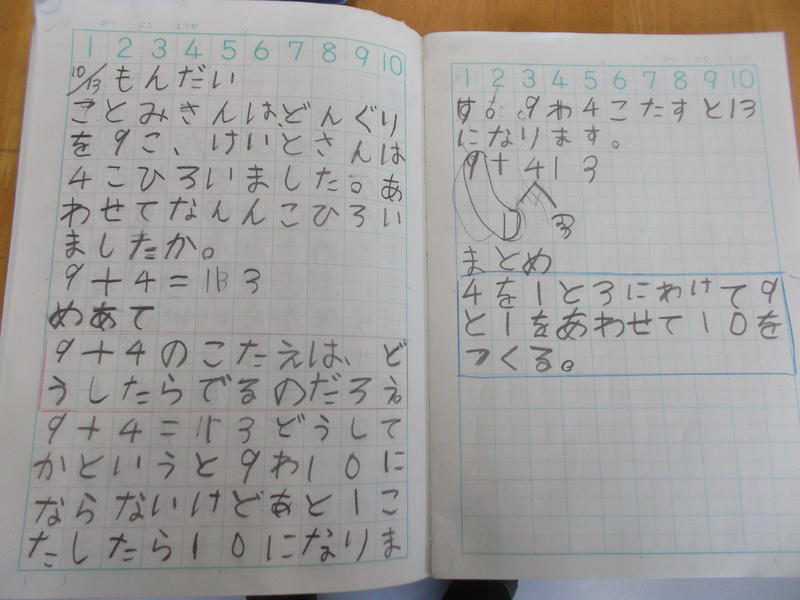 1 2 3 4 5 6 7 8 9 10
10/13 もんだい
さとみさんは、どんぐり
を9こ、けいとさんは
4こひろいました。あ
わせてなんんこひろい
ましたか。
9+4=13
めあて
9+4のこたえは、ど
うしたらでるのだろう
9+4=13どうして
かというと9わ10に
ならないけどあと1こ
たしたら10になりま
1 2 3 4 5 6 7 8 9 10
す。9わ4こたすと13
になります。
9+413
1 3
まとめ
4を1と3にわけて9
と1をあわせて10を
つくる。